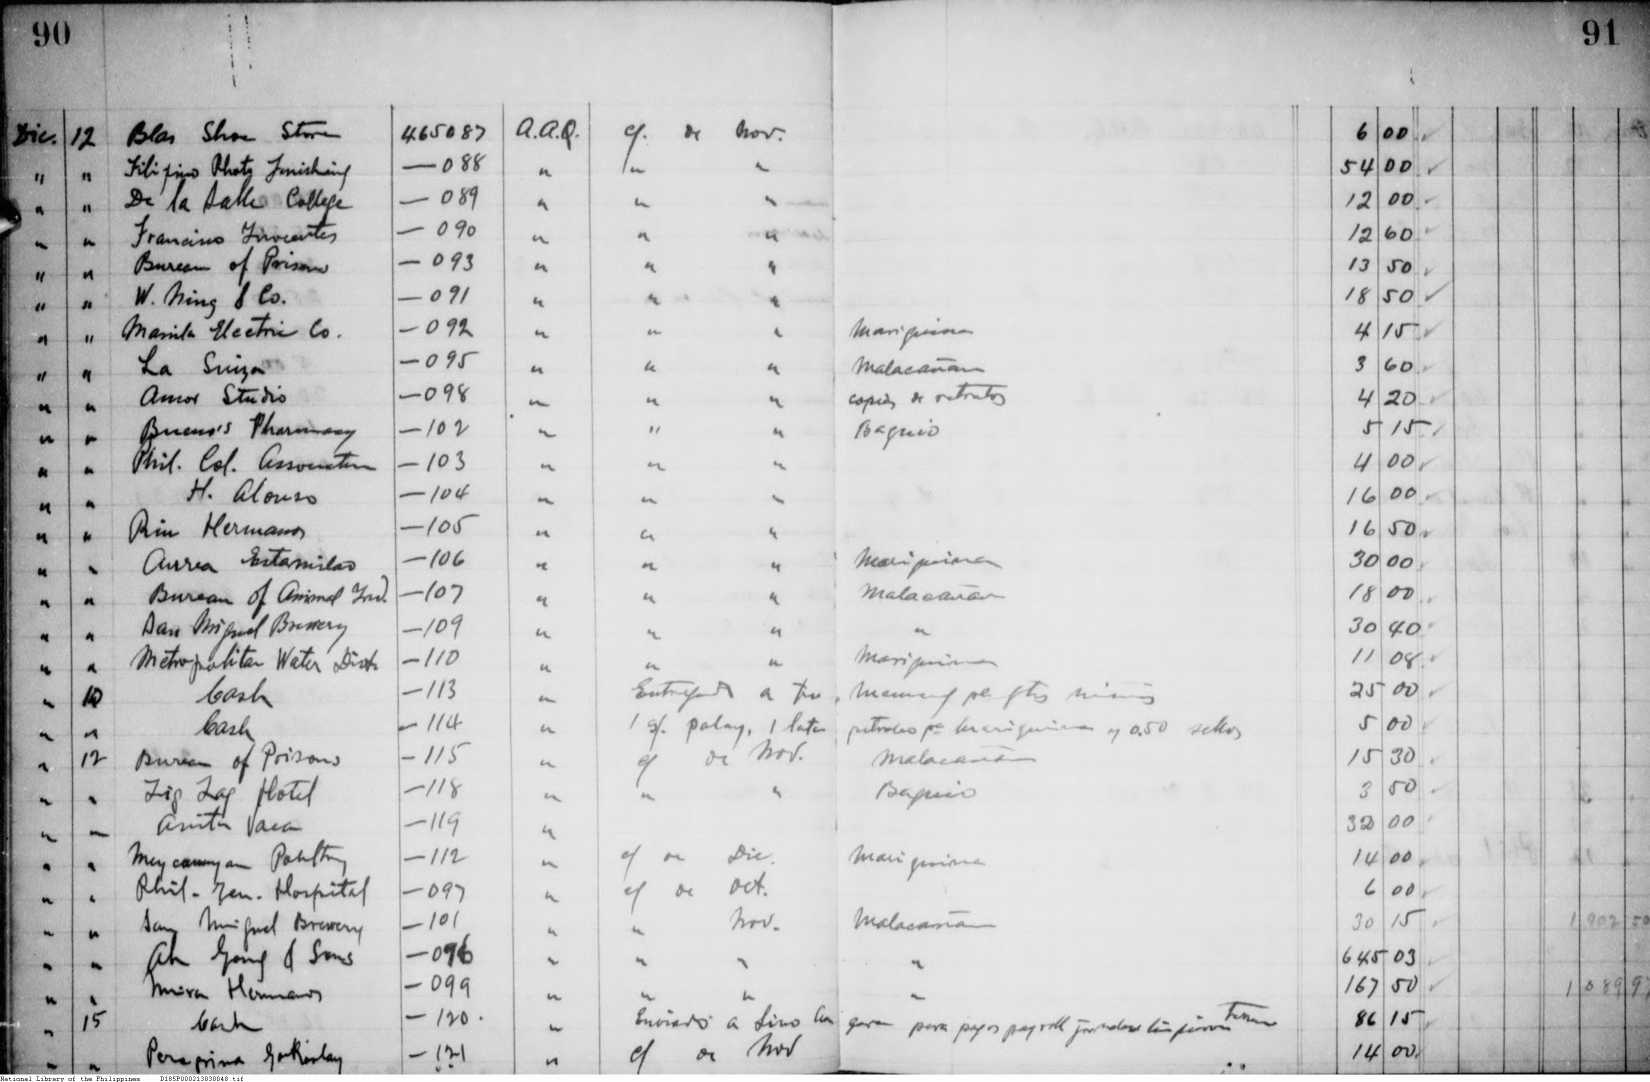 90 91
Dic. 12 Blas Shoe Store 465087 A.A.Q. cf. de Nov. 6 00
" " Filipino Photo Finishing — 088 " " " 54 00
" " De la Salle College — 089 " " " 12 00
" " Francisco — 090 " " " 12 60
" " Bureau of Prisons — 093 " " " 13 50
" " W. Ning & Co. — 091 " " " 18 50
" " Manila Electric Co. — 092 " " " Mariquina 4 15
" " La Suiza — 095 " " " Malacañan 3 60
" " Amor Studio — 098 " " " copias de retratos 4 20
" " Bueno's Pharmacy — 102 " " " Baguio 5 15
" " Phil. Col. Association — 103 " " " 4 00
" " H. Alonso — 104 " " " 16 00
" " Riu Hermanos — 105 " " " 16 50
" " Aurea Estanislao — 106 " " " Mariquina 30 00
" " Bureau of Animal Ind. — 107 " " " Malacañan 18 00
" " San Miguel Brewery — 109 " " " " 30 40
" " Metropolitan Water Dist. — 110 " " " Mariquina 11 08
" 10 Cash — 113 " Entregado a 25 00
" " Cash — 114 " 1 palay, 1 lata petroleo pa Mariquina y 0.50 sellos 5 00
" 12 Bureau of Prisons — 115 " cf de Nov. Malacañan 15 30
" " Zig Zag Hotel — 118 " " " Baguio 3 50
" " Anita Vaca — 119 " 32 00
" " Meycauayan Poultry — 112 " cf de Dic. Mariquina 14 00
" " Phil. Gen. Hospital — 097 " cf de Oct. 6 00
" " San Miguel Brewery — 101 " " Nov. Malacañan 30 15 1 902 50
" " Ah Gong & Sons — 096 " " " " 645 03
" " Hermanos — 099 " " " " 167 50 1 089 97
" 15 Cash — 120 . " Enviado a Lino para pagos payroll 86 15
" Peregrina — 121 " cf de Nov 14 00
National Library of the Philippines D185P000213030048.tif